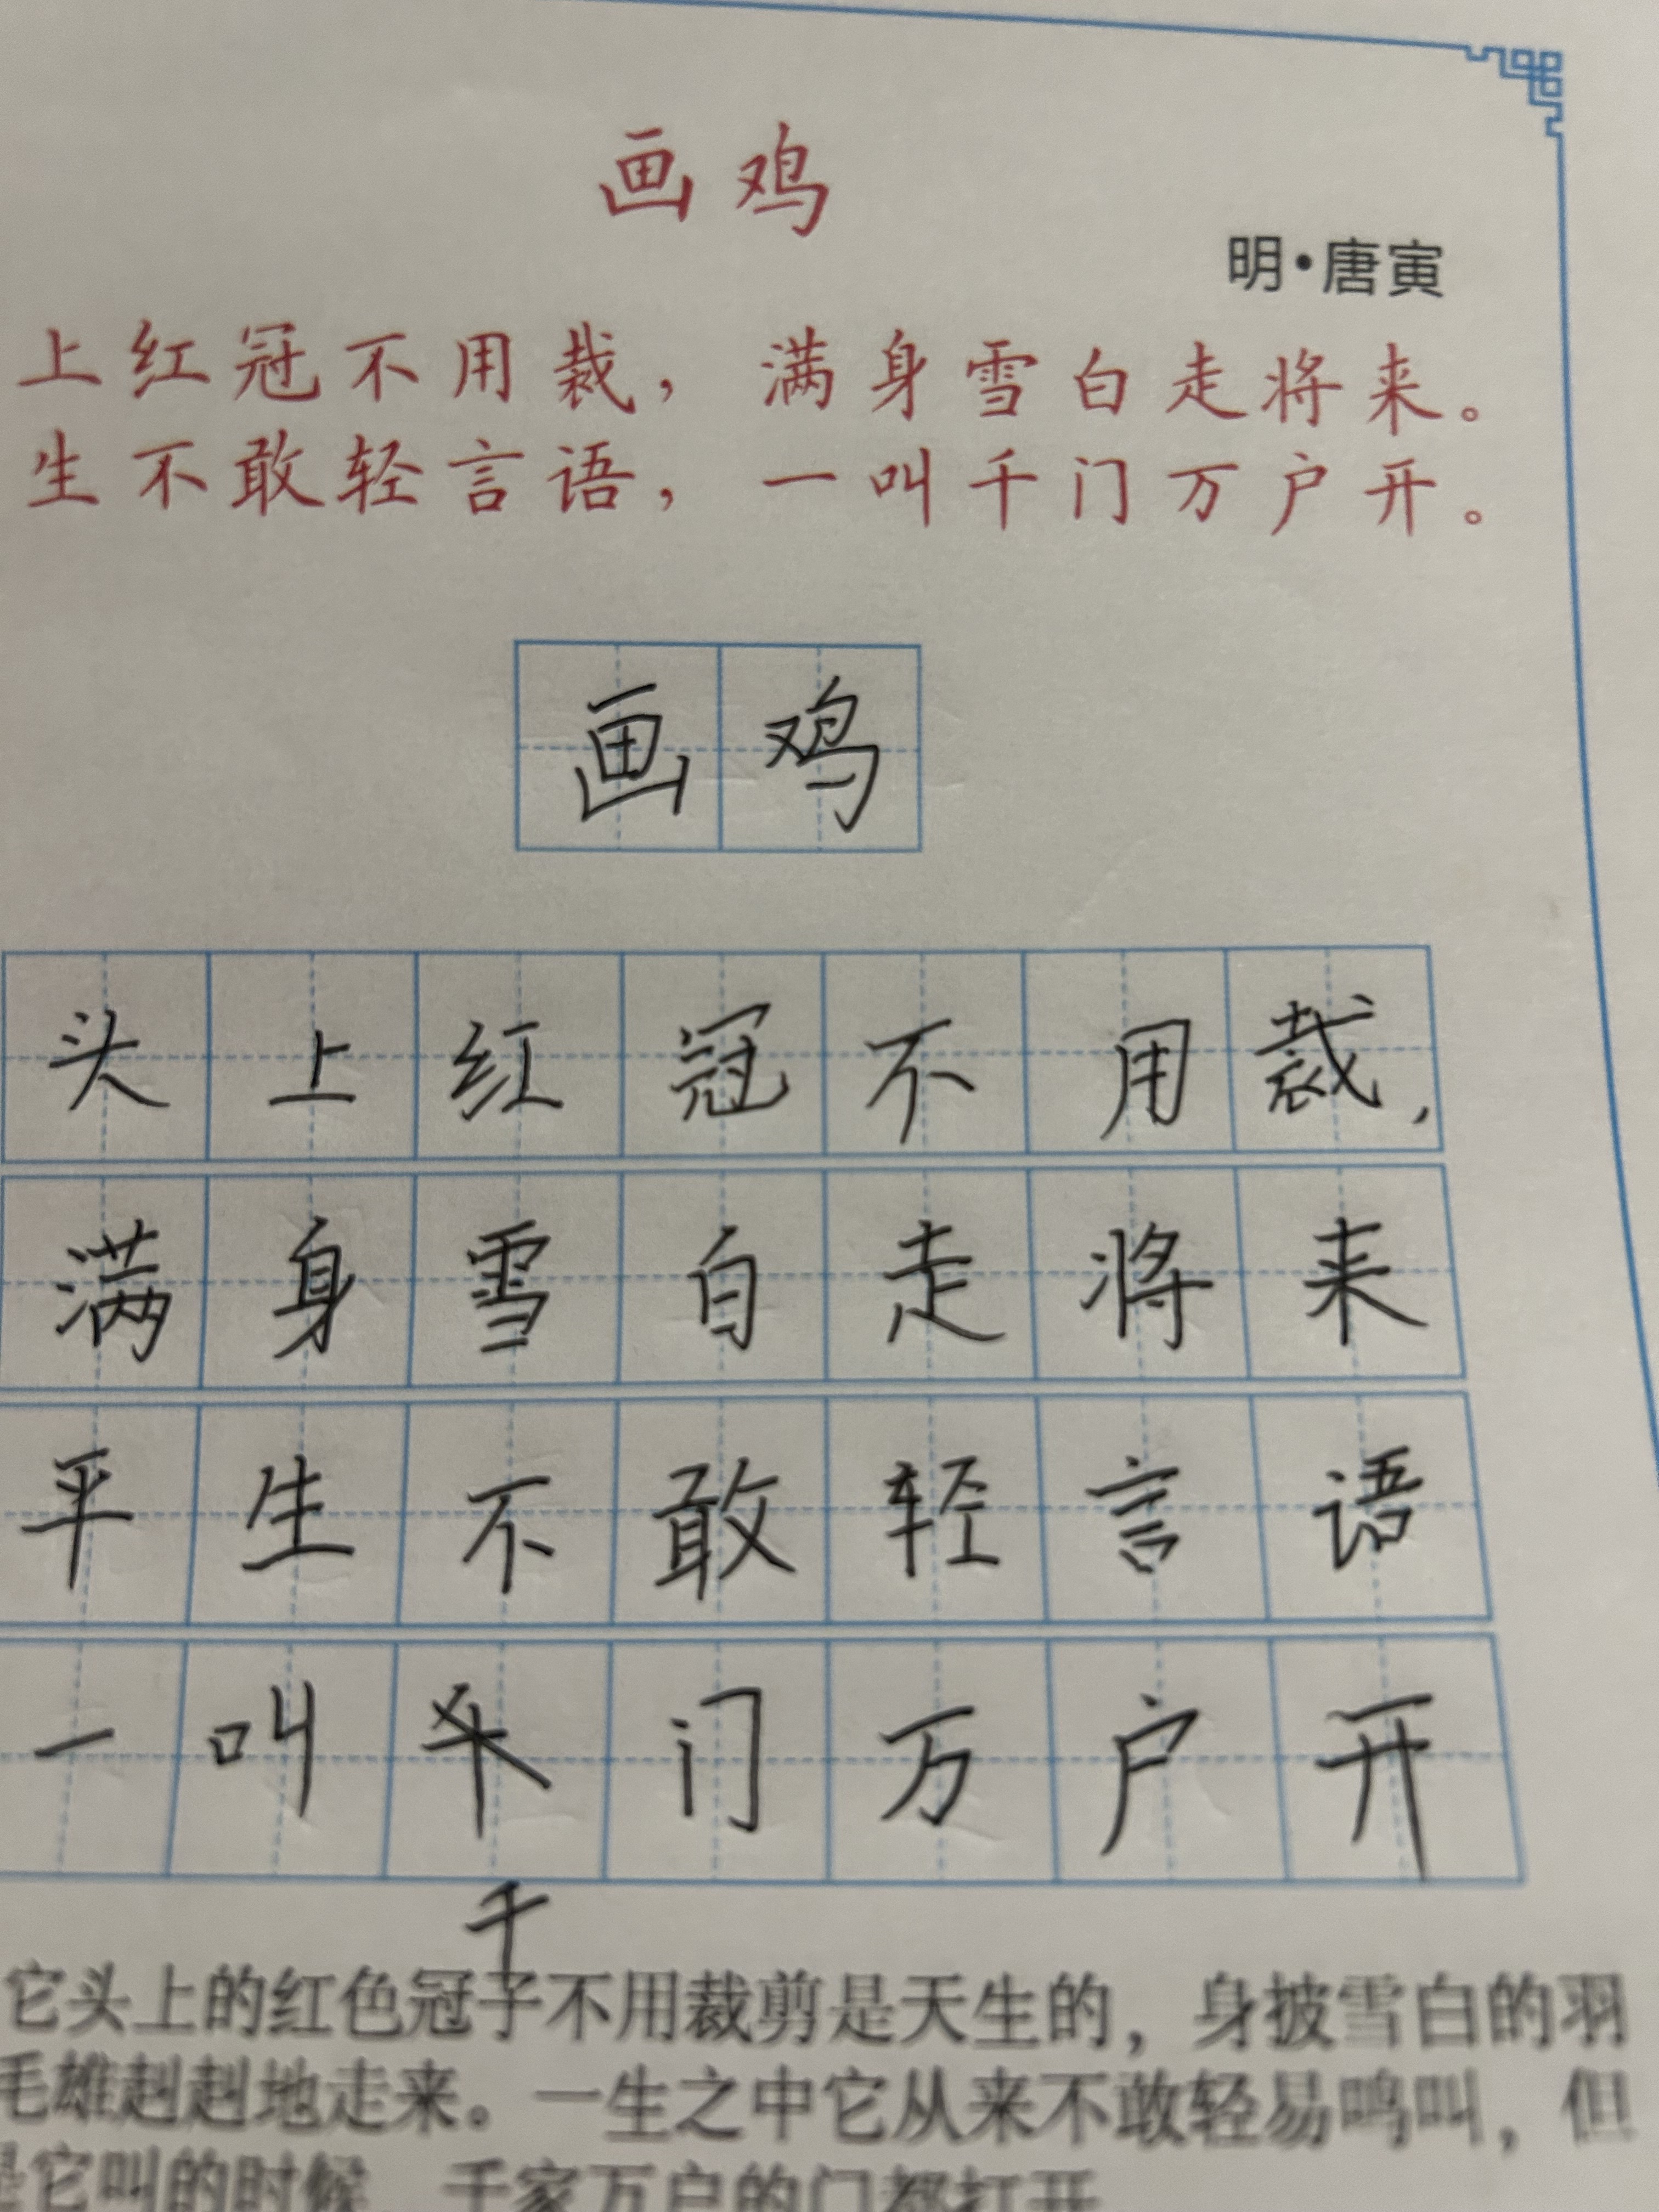 画鸡
明·唐寅
上红冠不用裁，满身雪白走将来。
生不敢轻言语，一叫千门万户开。
画鸡
头上红冠不用裁，
满身雪白走将来
平生不敢轻言语
一叫门万户开
千
它头上的红色冠子不用裁剪是天生的，身披雪白的羽
毛雄赳赳地走来。一生之中它从来不敢轻易鸣叫，但
是它叫的时候，千家万户的门都打开